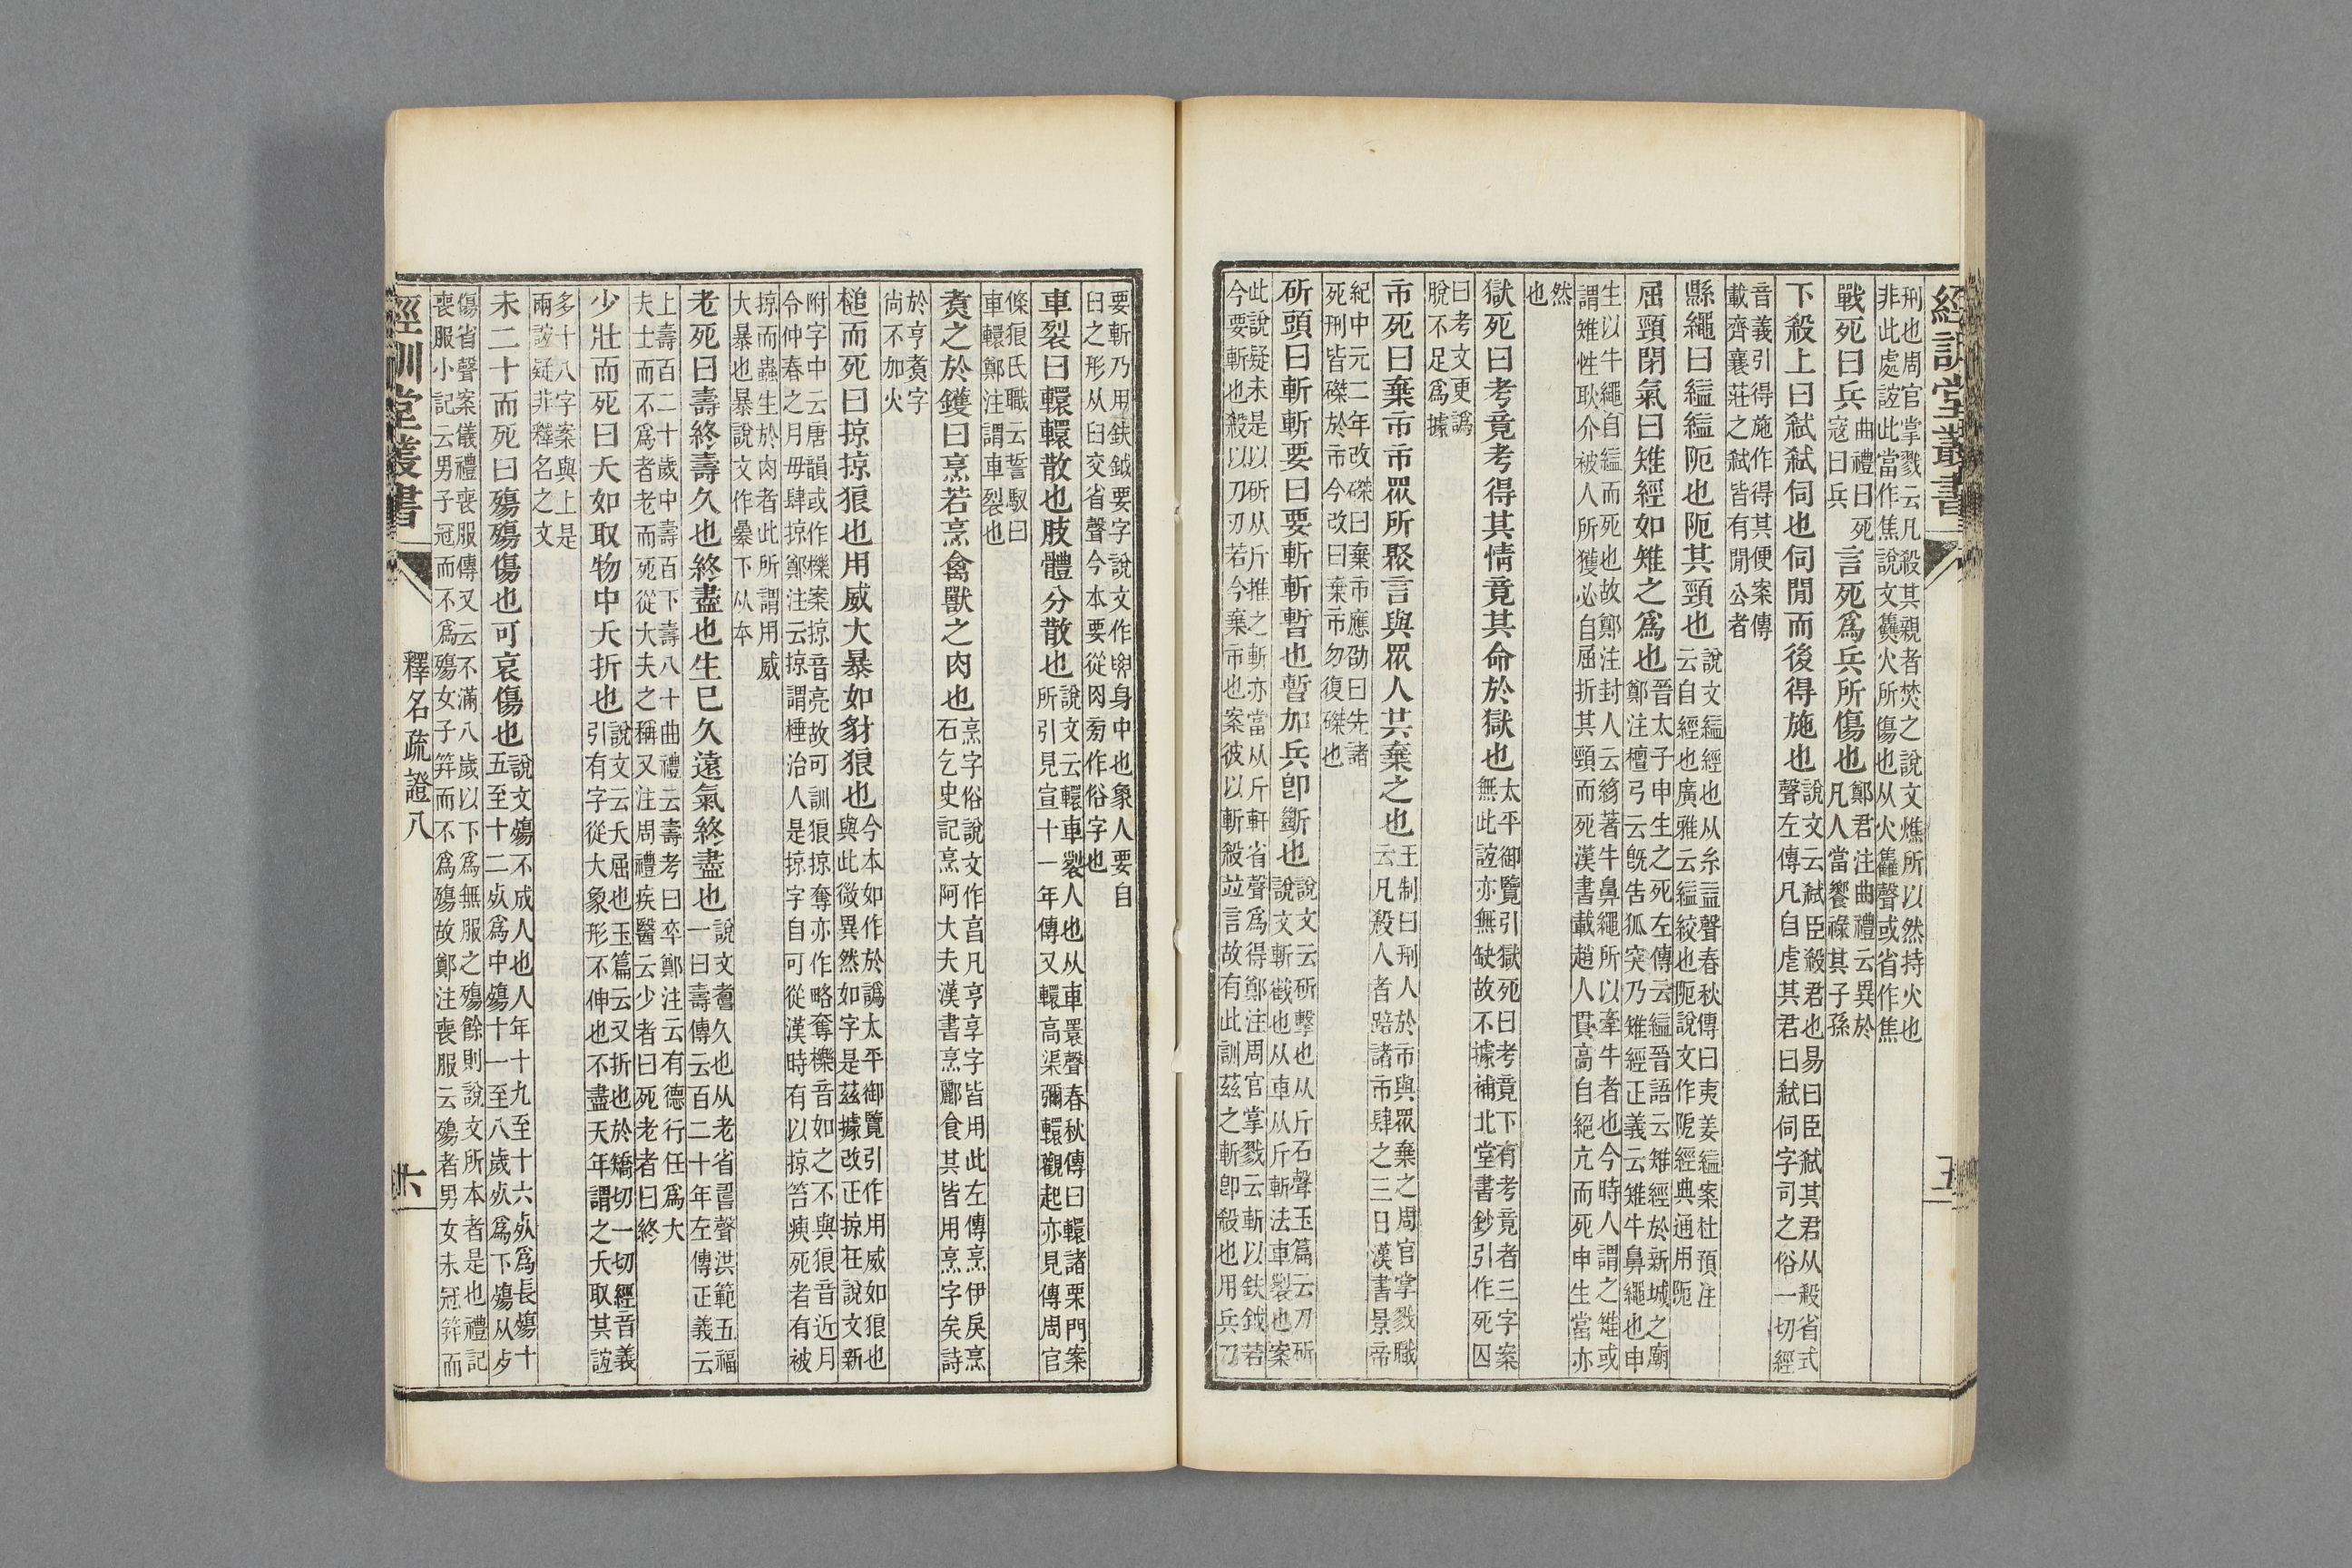 經訓堂叢書
刑也周官掌戮云凡殺其親者焚之說文燋所以然持火也
非此處誼此當作焦說文㸈火所傷也从火雥聲或省作焦
戰死曰兵曲禮曰死寇曰兵言死爲兵所傷也鄭君注曲禮云異於凡人當饗祿其子孫
下殺上曰弒弒伺也伺閒而後得施也說文云弒臣殺君也易曰臣弒其君从殺省式聲左傳凡自虐其君曰弒伺字司之俗一切經
音義引得施作得其便案傳
載齊襄莊之弒皆有閒公者
縣繩曰縊縊阨也阨其頸也說文縊經也从糸益聲春秋傳曰夷姜縊案杜預注云自經也廣雅云縊絞也阨說文作𨸝經典通用阨
屈頸閉氣曰雉經如雉之爲也晉太子申生之死左傳云縊晉語云雉經於新城之廟鄭注檀弓云旣告狐突乃雉經正義云雉牛鼻繩也申
生以牛繩自縊而死也故鄭注封人云絼著牛鼻繩所以牽牛者也今時人謂之雉或
謂雉性耿介被人所獲必自屈折其頸而死漢書載趙人貫高自絕亢而死申生當亦
然
也
獄死曰考竟考得其情竟其命於獄也太平御覽引獄死曰考竟下有考竟者三字案無此誼亦無缺故不據補北堂書鈔引作死囚
曰考文更譌
脫不足爲據
市死曰棄市市眾所聚言與眾人共棄之也王制曰刑人於市與眾棄之周官掌戮職云凡殺人者踣諸市肆之三日漢書景帝
紀中元二年改磔曰棄市應劭曰先諸
死刑皆磔於市今改曰棄市勿復磔也
斫頭曰斬斬要曰要斬斬暫也暫加兵卽斷也說文云斫擊也从斤石聲玉篇云刀斫說文斬截也从車从斤斬法車裂也案
此說疑未是以斫从斤推之斬亦當从斤軒省聲爲得鄭注周官掌戮云斬以鈇鉞若
今要斬也殺以刀刃若今棄市也案彼以斬殺竝言故有此訓茲之斬卽殺也用兵乃
要斬乃用鈇鉞要字說文作𦥼身中也象人要自
臼之形从臼交省聲今本要從肉㫄作俗字也
車裂曰轘轘散也肢體分散也說文云轘車裂人也从車瞏聲春秋傳曰轘諸栗門案所引見宣十一年傳又轘高渠彌轘觀起亦見傳周官
條狼氏職云誓馭曰
車轘鄭注謂車裂也
煑之於鑊曰烹若烹禽獸之肉也烹字俗說文作亯凡亨享字皆用此左傳烹伊戾烹石乞史記烹阿大夫漢書烹酈食其皆用烹字矣詩
於亨煑字
尙不加火
槌而死曰掠掠狼也用威大暴如豺狼也今本如作於譌太平御覽引作用威如狼也與此微異然如字是茲據改正掠在說文新
附字中云唐韻或作擽案掠音亮故可訓狼掠奪亦作略奪擽音如之不與狼音近月
令仲春之月毋肆掠鄭注云掠謂棰治人是掠字自可從漢時有以掠笞瘐死者有被
掠而蟲生於肉者此所謂用威
大暴也暴說文作㬥下从夲
老死曰壽終壽久也終盡也生巳久遠氣終盡也說文𦓂久也从老省𠷎聲洪範五福一曰壽傳云百二十年左傳正義云
上壽百二十歲中壽百下壽八十曲禮云壽考曰卒鄭注云有德行任爲大
夫士而不爲者老而死從大夫之稱又注周禮疾醫云少者曰死老者曰終
少壯而死曰夭如取物中夭折也說文云夭屈也玉篇云又折也於矯切一切經音義引有字從大象形不伸也不盡天年謂之夭取其誼
多十八字案與上是
兩誼疑非釋名之文
未二十而死曰殤殤傷也可哀傷也說文殤不成人也人年十九至十六𣦸爲長殤十五至十二𣦸爲中殤十一至八歲𣦸爲下殤从歺
傷省聲案儀禮喪服傳又云不滿八歲以下爲無服之殤餘則說文所本者是也禮記
喪服小記云男子冠而不爲殤女子笄而不爲殤故鄭注喪服云殤者男女未冠笄而
經訓堂叢書
釋名疏證八
六